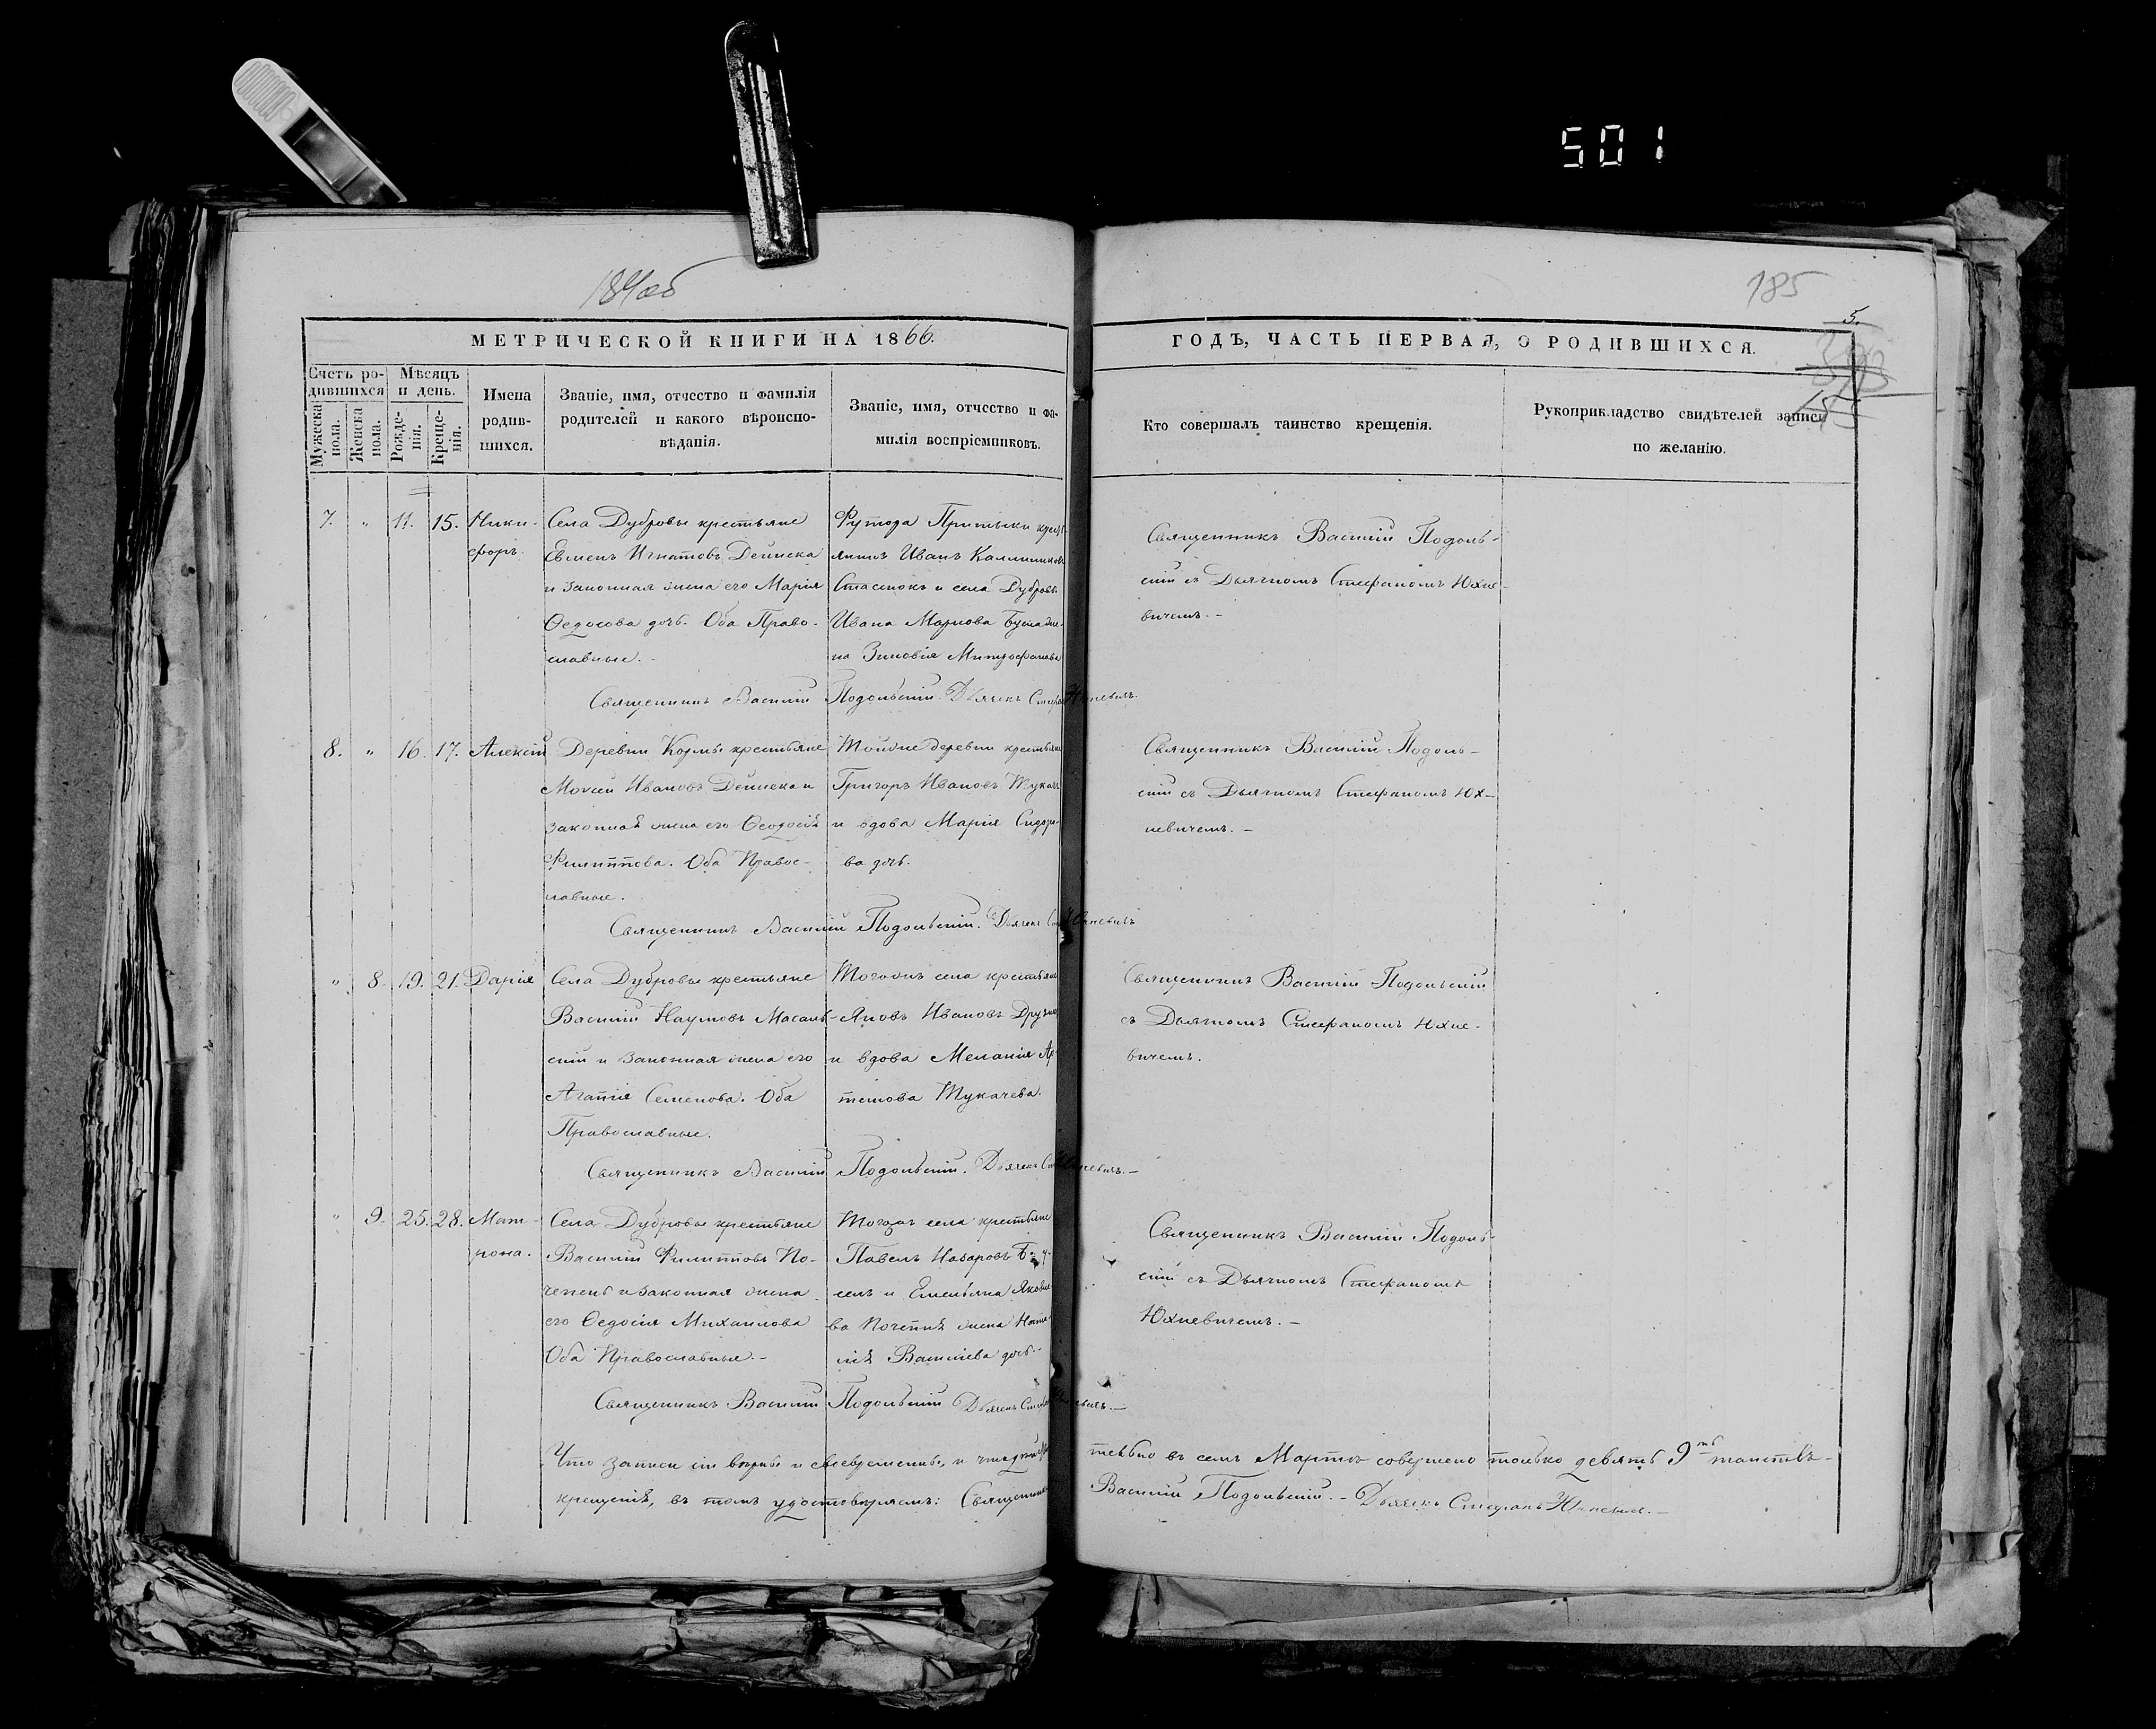 501
184об
185
5.
МЕТРИЧЕСКОЙ КНИГИ НА 1866.
ГОДЪ, ЧАСТЬ ПЕРВАЯ, О РОДИВШИХСЯ.
Счетъ ро-
дившихся
Мужеска
пола.
Женска
пола.
Мѣсяцъ
и день.
Рожде-
нія.
Креще-
нія.
Имена
родив-
шихся.
Званіе, имя, отчество и фамилія
родителей и какого вѣроиспо-
вѣданія.
Званіе, имя, отчество и фа-
милія воспріемниковъ.
Кто совершалъ таинство крещенія.
Рукоприкладство свидѣтелей записи
по желанію.
7. " 11. 15. Ники-
форъ.
Села Дубровы крестьяне
Евменъ Игнатовъ Дейнека
и законная жена его Марія
Ѳедосова дочь. Оба Право-
славные.
Иванъ
и села Дубровы
Ивана Маркова
Зиновія Митрофанова
Священникъ Василій Подоль-
скій съ Дьячкомъ Стефаномъ Юхне-
вичемъ.-
Священникъ Василій Подольскій. Дьячекъ Юхневичъ.
8. " 16. 17. Алексій
Деревни Кормы крестьяне
Моисей Ивановъ Дейнека и
законная жена его Ѳеодосія
Филиппова. Оба Правос-
лавные.
Тойже деревни крестьяне
Григорь Ивановъ Тукачъ
и вдова Марія Сидоро-
ва дочь.
Священникъ Василій Подоль-
скій съ Дьячкомъ Стефаномъ Юх-
невичемъ.-
Священникъ Василій Подольскій. Дьячекъ Юхневичъ
" 8. 19. 21. Дарія
Села Дубровы крестьяне
Василій Наумовъ Масаль-
скій и законная жена его
Агапія Семенова. Оба
Православные.
Тогожъ села крестьяне
Яковъ Ивановъ
и вдова Меланія Ар-
темова Тукачева.
Священникъ Василій Подольскій
съ Дьячкомъ Стефаномъ Юхне-
вичемъ.
Священникъ Василій Подольскій. Дьячекъ Юхневичъ.-
" 9. 25. 28. Мат-
рона.
Села Дубровы крестьяне
Василій Филипповъ По-
чепень и законная жена
его Ѳедосія Михаилова
Оба Православные.-
Тогожъ села крестьяне
Павелъ Назаровъ
и Емельяна Яковле-
ва жена
Васильева дочь.-
Священникъ Василій Подоль-
скій съ Дьячкомъ Стефаномъ
Юхневичемъ.-
Священникъ Василій Подольскій Дьячекъ Юхневичъ.-
Что записи сіи вѣрны и своевременны, и что въ семъ Мартѣ совершено только девять 9ть таинствъ
крещенія, въ томъ удостовѣряемъ: Священникъ Василій Подольскій.- Дьячекъ Стефанъ Юхневичъ.-